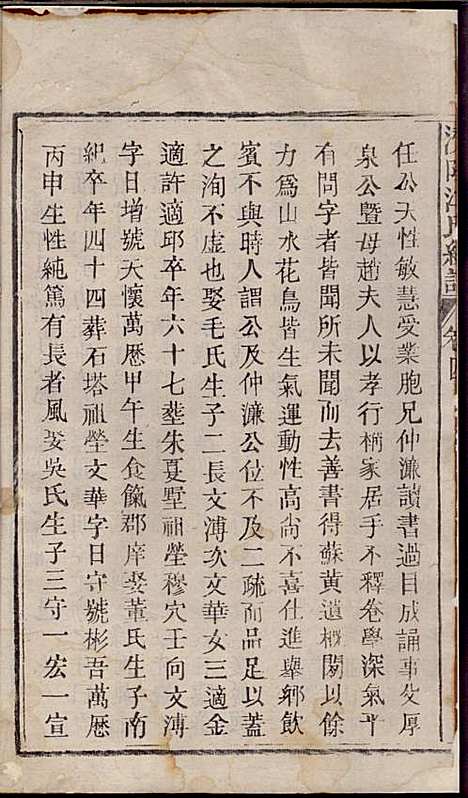 任公天性敏慧愛業胞兄仲濂讀書過目成誦事父厚
泉公暨母趙夫人以孝行稱家居手不釋卷學深氣平
有問字者皆聞所未聞而去善書得蘇黃遺槪閱以餘
力爲山水花鳥皆生氣運動性高尙不喜仕進舉鄕飮
賓不與時人謂公及仲濂公位不及二疏而品足以蓋
之洵不虛也娶毛氏生子二長文溥次文華女三適金
適許適邱卒年六十七塟朱夏墅祖塋穆穴壬向文溥
字日增號天懷萬歷甲午生食餼郡庠娶董氏生子南
紀卒年四十四葬石塔祖塋文華字日守號彬吾萬歷
丙申生性純篤有長者風娶吳氏生子三守一宏一宣